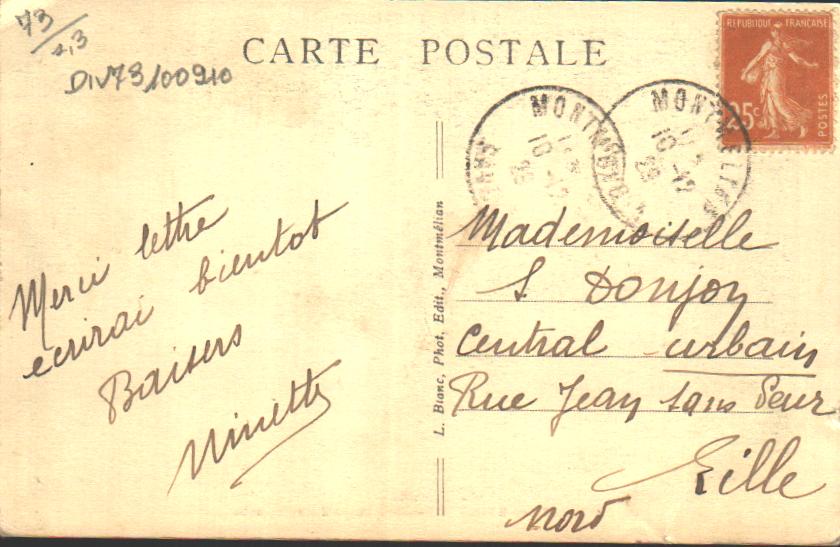 73
DIV73100910
CARTE POSTALE
REPUBLIQUE FRANÇAISE
25c
POSTES
MONTMELIAN
MONTMELIAN
SAVOIE
Merci lettre
écrirai bientot
Baisers
Ninette
L. Blanc, Phot. Edit., Montmélian
Mademoiselle
S Donjon
Central urbain
Rue Jean sans Peur
Lille
Nord